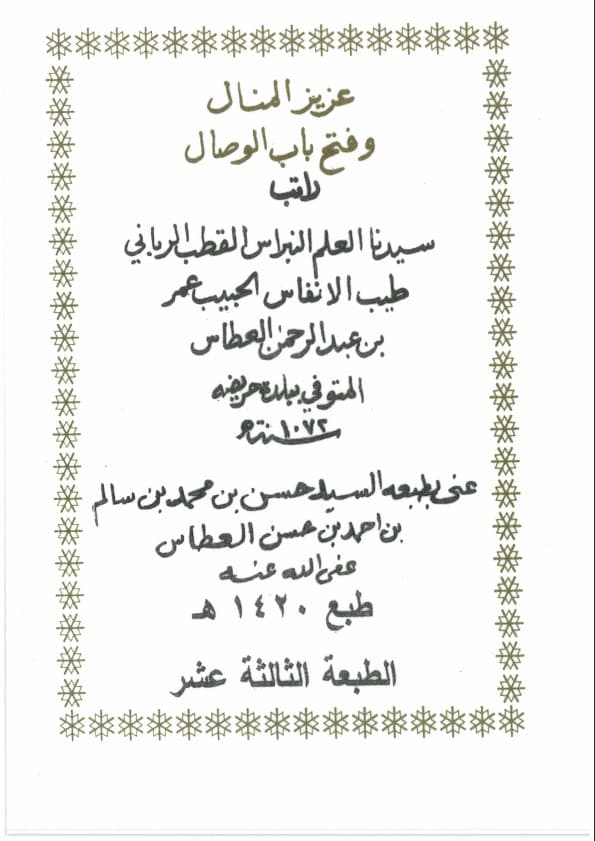 عزيز المنال
وفتح باب الوصال
راتب
سيدنا العلم النبراس القطب الرباني
طيب الانفاس الحبيب عمر
بن عبد الرحمن العطاس
المتوفي ببلدة حريضه
سنة ١٠٧٢ه
عنى بطبعه السيد حسن بن محمد بن سالم
بن احمد بن حسن العطاس
عفى الله عنه
طبع ١٤٢٠ هـ
الطبعة الثالثة عشر